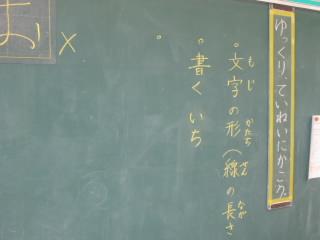 ゆっくり、ていねいにかこう。
。文字の形(線の長さ
もじ
かたち
せん
なが
。書くいち
。
×
お